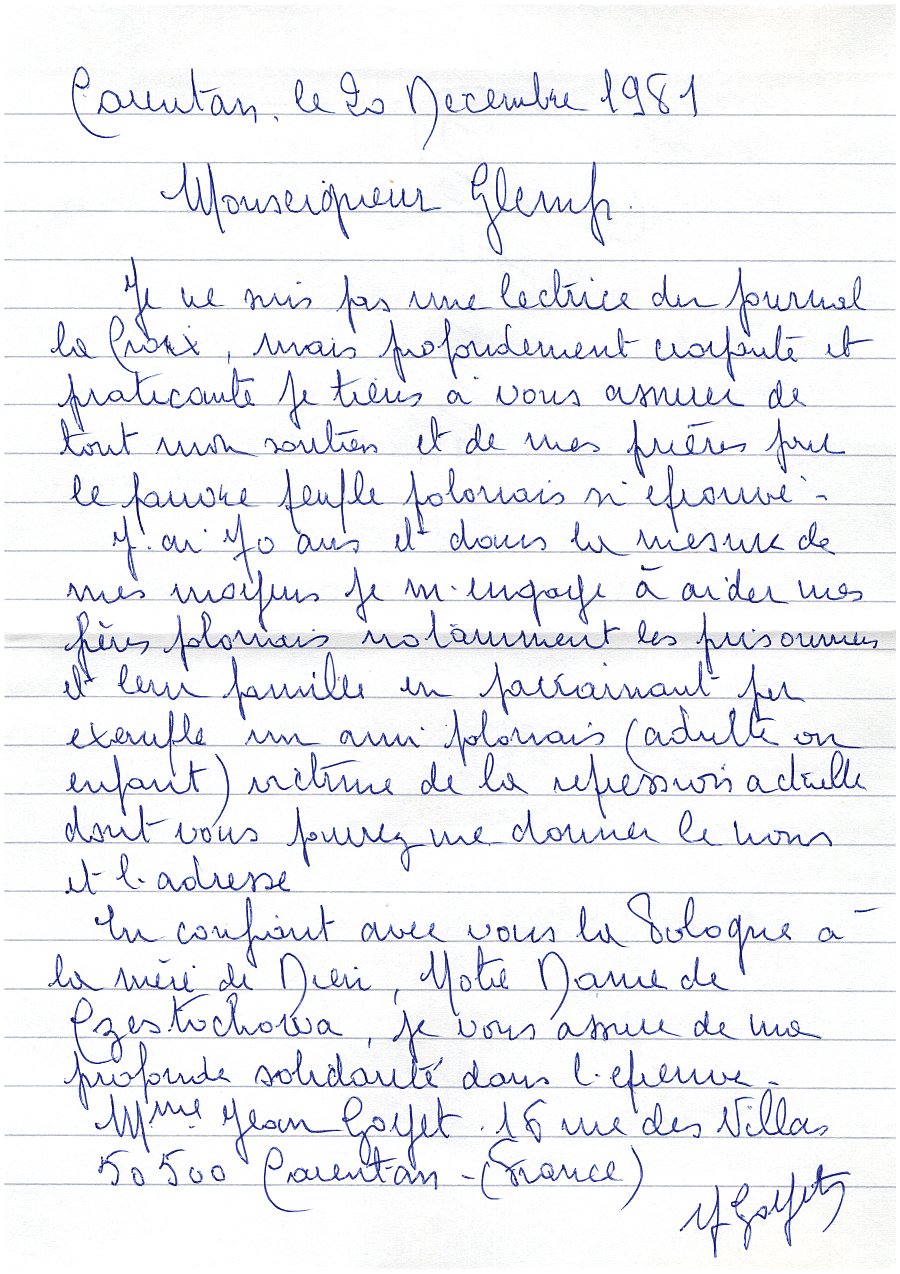 Carentan, le 20 Decembre 1981
Monseigneur Glemp.
Je ne suis pas une lectrice du journal
la Croix, mais profondement croyante et
praticante je tiens à vous assurer de
tout mon soutien et de mes prières pour
le pauvre peuple polonais si eprouvé -
J'ai 70 ans et dans la mesure de
mes moyens je m'engage à aider mes
frères polonais notamment les prisonniers
et leur famille en parrainant par
exemple un ami polonais (adulte ou
enfant) victime de la repression actuelle
dont vous pourrez me donner le nom
et l'adresse
En confiant avec vous la Pologne à
la mère de Dieu, Notre Dame de
Czestochowa, je vous assure de ma
profonde solidarité dans l'epreuve -
Mme Jean Goyet. 16 rue des Villas
50500 Carentan - (France)
Goyet